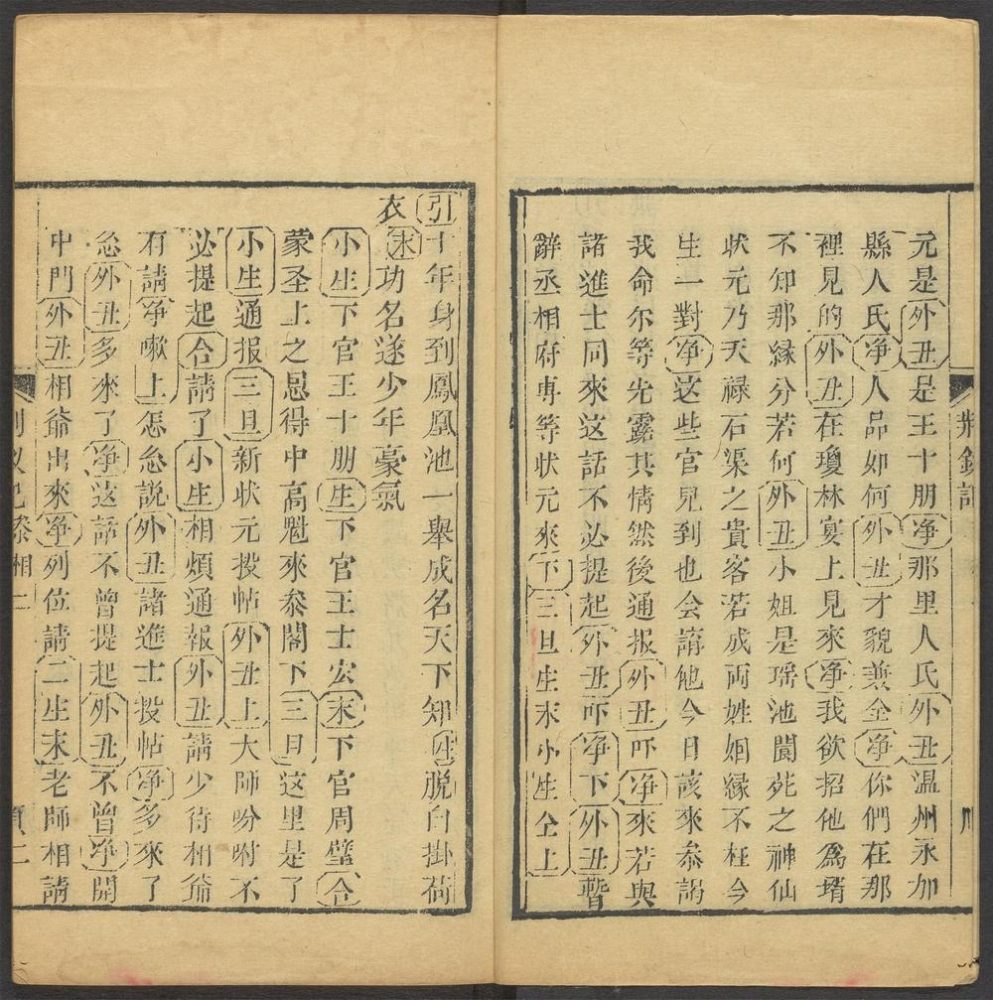 元是外丑是王十朋净那里人氏外丑温州永加
縣人氏净人品如何外丑才貌兼全净你們在那
裡見的外丑在瓊林宴上見來净我欲招他爲壻
不知那緣分若何外丑小姐是瑶池閬苑之神仙
狀元乃天禄石渠之貴客若成両姓姻縁不枉今
生一對净这些官兒到也会講他今日該來叅謁
我命尔等先露其情然後通报外丑吓净來若與
諸進士同來这話不必提起外丑吓净下外丑暫
辭丞相府専等状元來下三旦生末小生仝上
引十年身到鳳凰池一舉成名天下知生脱白掛荷
衣末功名遂少年豪氣
小生下官王十朋生下官王士宏末下官周璧合
蒙圣上之恩得中高魁來叅閣下三旦这里是了
小生通报三旦新状元投帖外丑上大師吩咐不
必提起合請了小生相煩通報外丑請少待相爺
有請净嗽上怎怂説外丑諸進士投帖净多來了
怂外丑多來了净这話不曾提起外丑不曾净開
中門外丑相爺出來净列位請二生末老師相請
荆釵記
叅相二